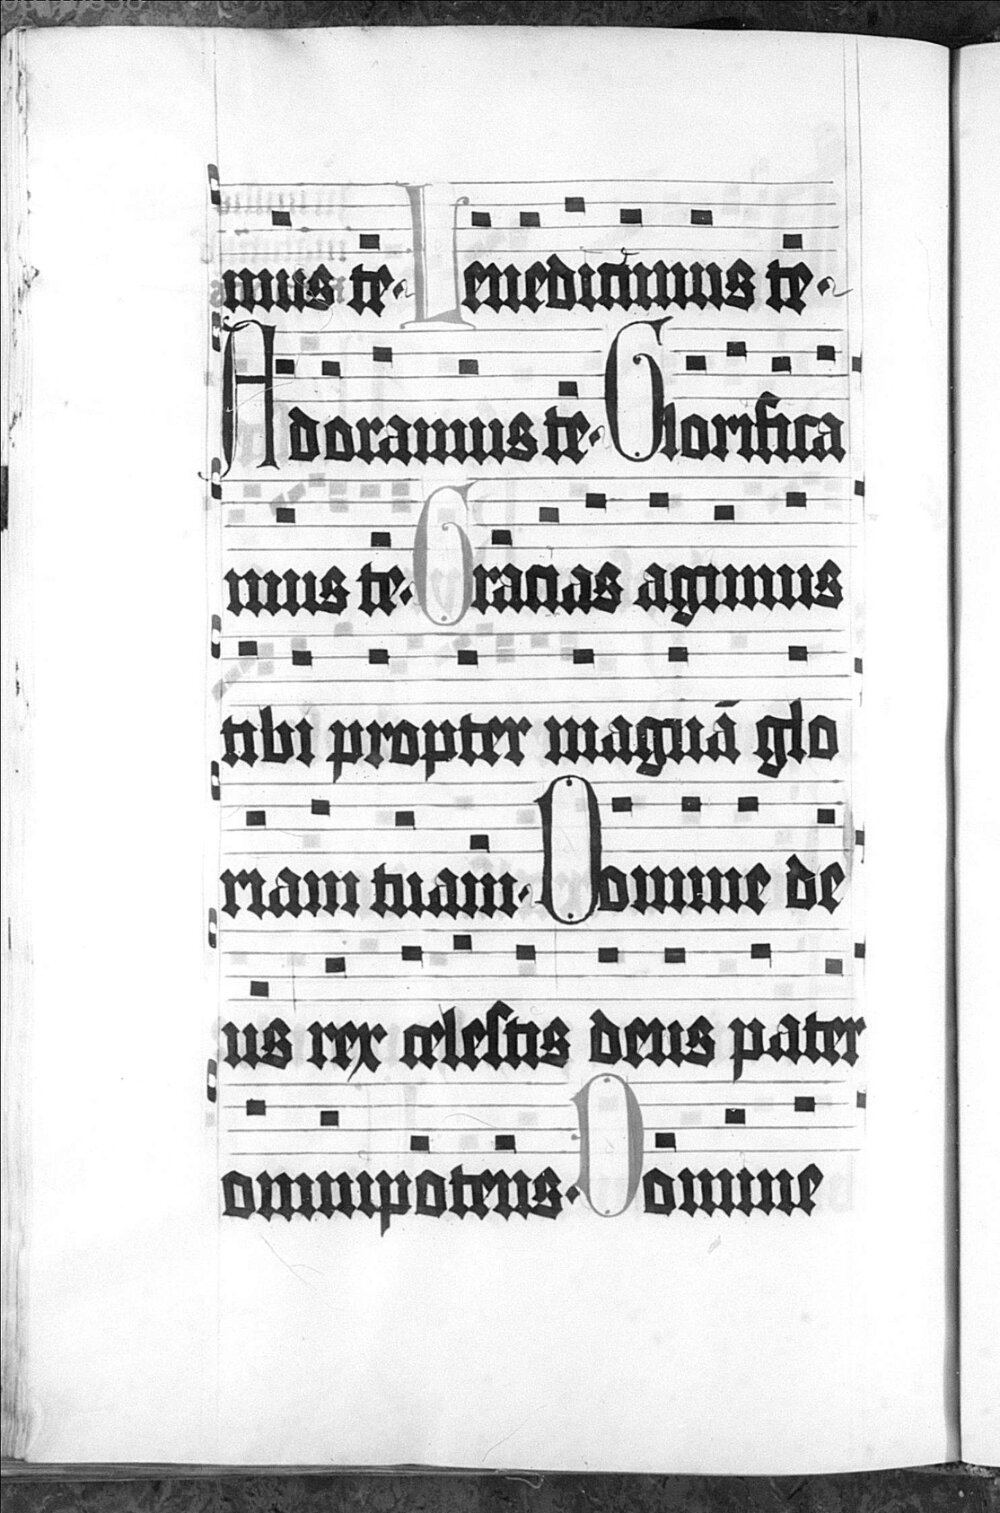 mus te. Benedicimus te.
Adoramus te. Glorifica
mus te. Gracias agimus
tibi propter magnā glo
riam tuam. Domine de
us rex celestis deus pater
omnipotens. Domine